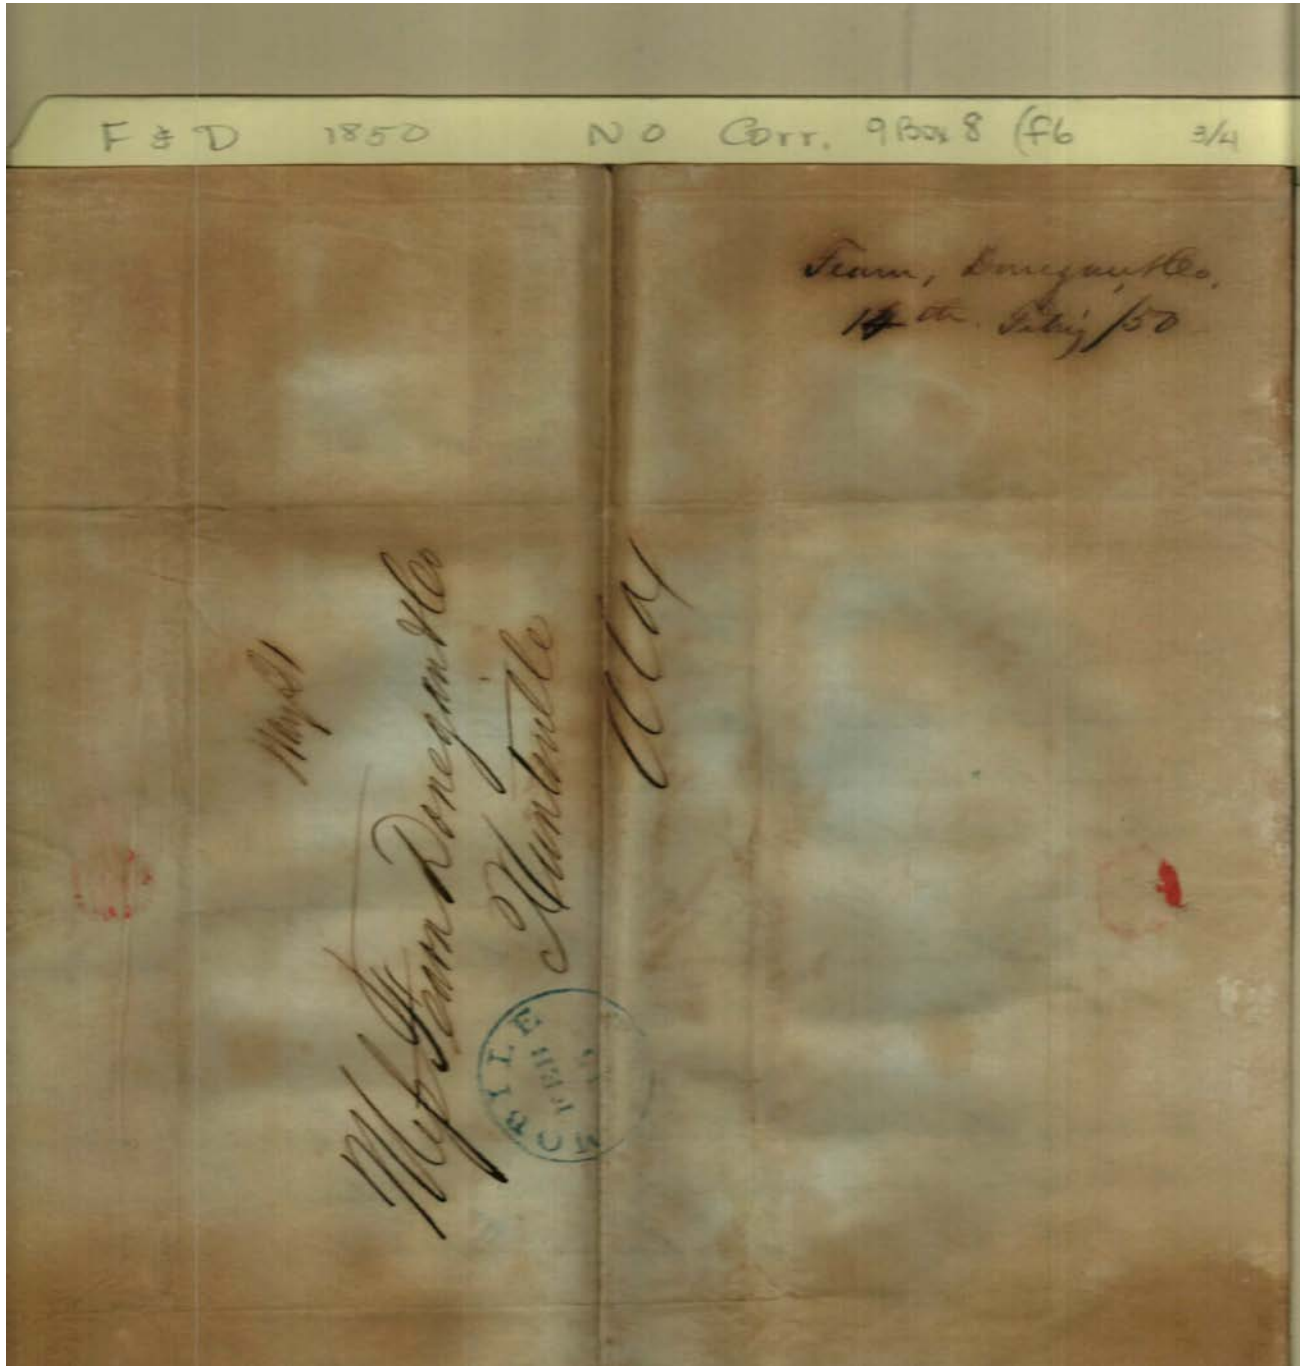 F & D 1850 NO Corr. 9 Box 8 (f6 3/4
Fearn, Donegan & Co.
14th. Feby /50
Messrs Fearn Donegan & Co
Huntsville
Ala
MOBILE
FEB